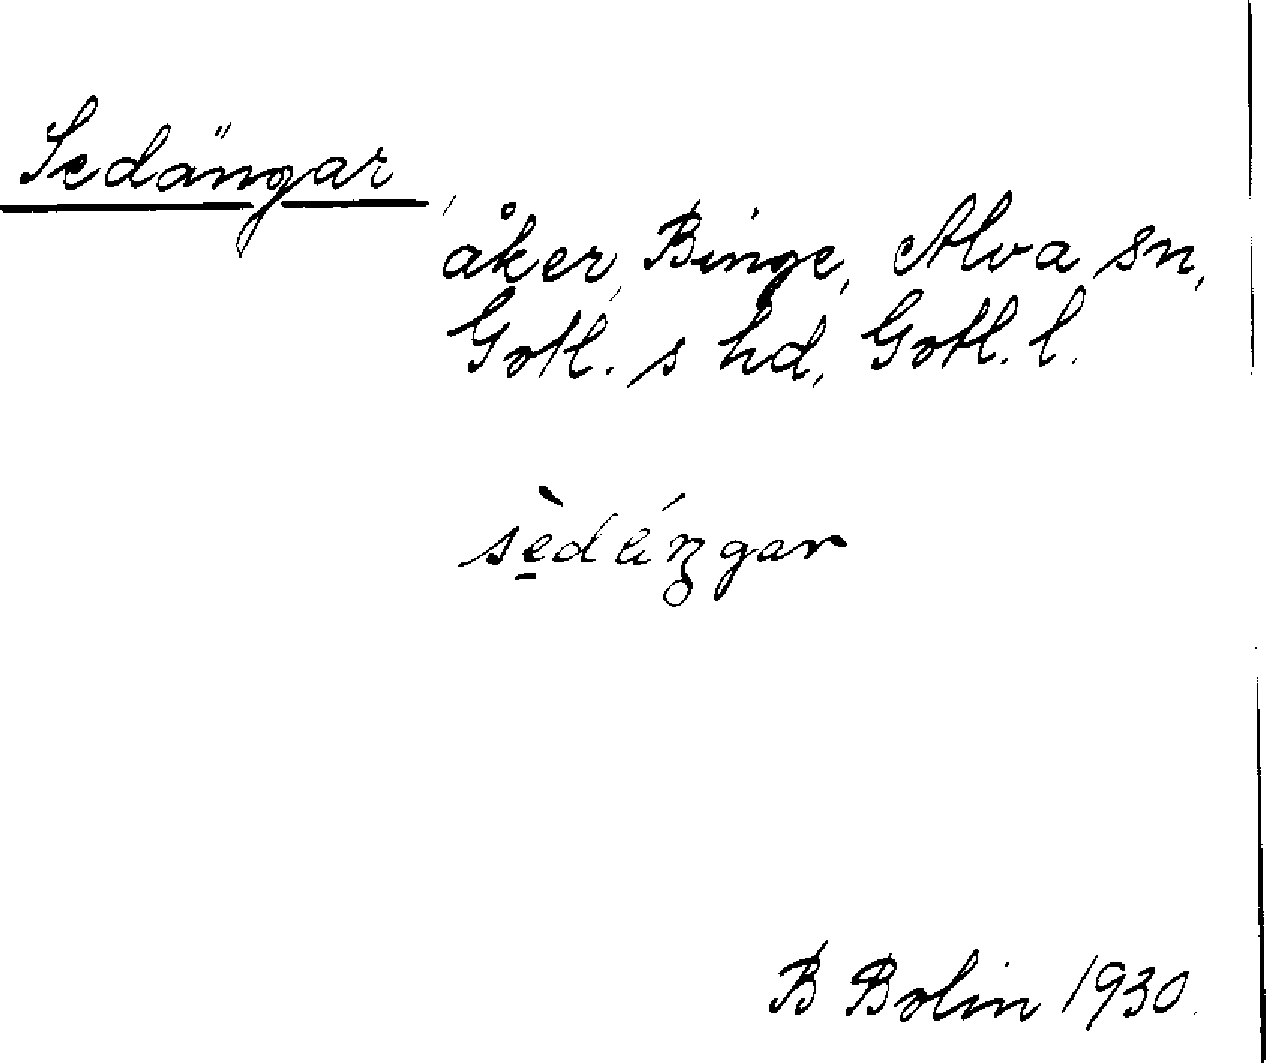 Sedängar
åker, Binge, Alva sn,
Gotl. s hd, Gotl. l.
sèdä́ŋgar
B Bolin 1930.